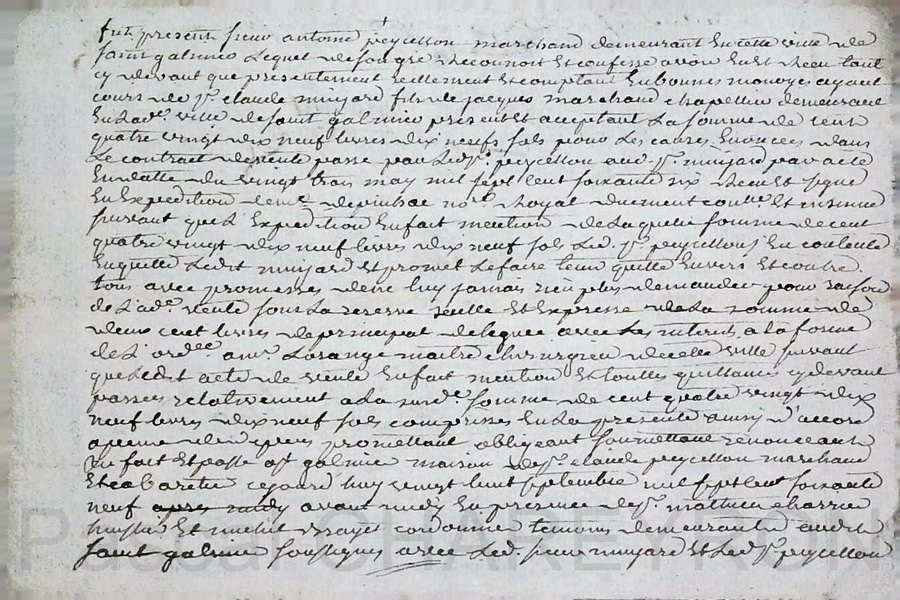 fut present sieur antoine peycellon marchand demeurant en cette ville de
saint galmier lequel de son gré a reconnoit et confesse avoir eu et receu tant
cy devant que presentement reellement et comptant en bonnes monoyes ayant
cours de sr. claude mujard fils de jacques marchand chapellier demeurant
en lad.e ville de saint galmier present et acceptant la somme de cent
quatre vingt dix neuf livres dix neuf sols pour les causes enoncees dans
le contrat de vente passé par led. sr. peycellon aud. sr. mujard par acte
en datte du vingt trois may mil sept cent soixante six receu et signé
en expedition de me. depinhac no.re royal duement controllé et insinué
suivant que l'expedition en fait mention de laquelle somme de cent
quatre vingt dix neuf livres dix neuf sols led. sr. peycellon en contente
en quitte ledit mujard et promet le faire tenir quitte envers et contre
tous avec promesses de ne luy jamais rien plus demander pour raison
de lad.e vente sous la reserve reelle et expresse de la somme de
deux cent livres de principal deleguée avec les interets a la forme
de l'ord.ce au sr. Lorange maitre chirurgien de cette ville suivant
que ledit acte de vente en fait mention et toutes quittances cy devant
passées relativement a la susd.e somme de cent quatre vingt dix
neuf livres dix neuf sols comprises en la presente ainsy d'accord
a peine de depens promettant obligeant soumettant renonceant
&a fait et passé a st. galmier maison de sr. claude peycellon marchand
et cabaretier ce jourd'huy vingt huit septembre mil sept cent soixante
neuf apres midy avant midy en presence de sr. mathieu charra
huissier et michel cordonnier temoins demeurants audit
saint galmier soussignés avec led. sieur mujard et led. sr. peycellon
Pascal CHAREYRON